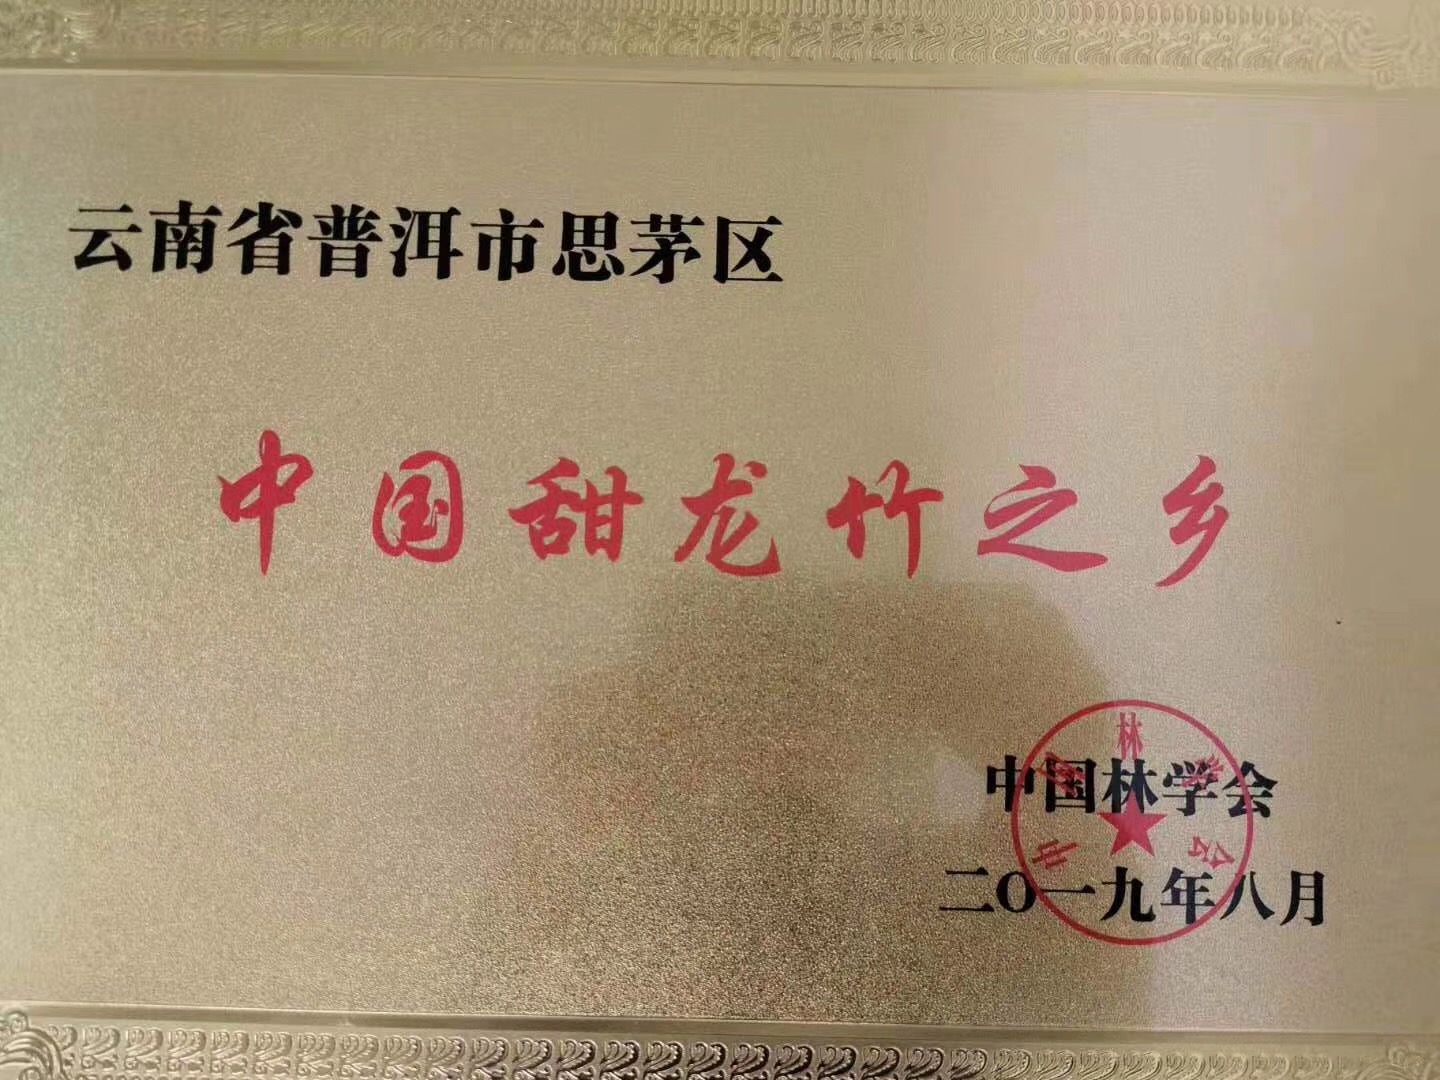 云南省普洱市思茅区
中国甜龙竹之乡
中国林学会
中国林学会
二〇一九年八月